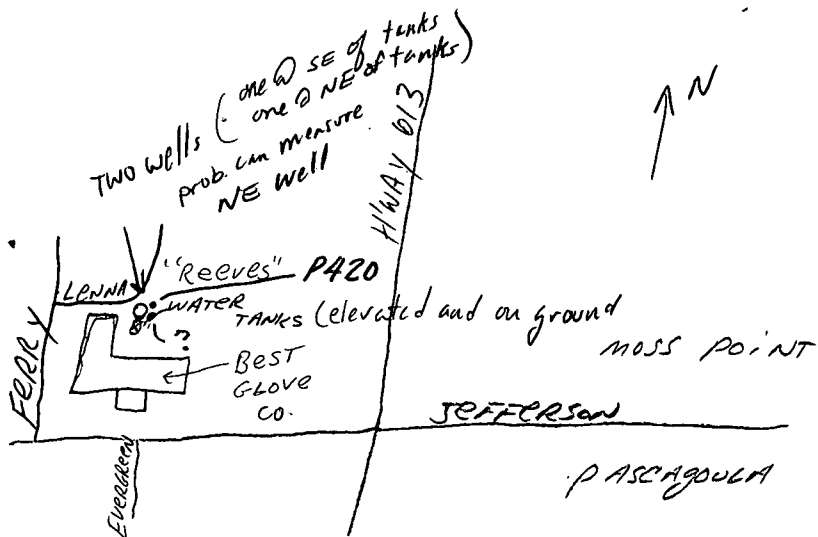 TWO wells ( one @ SE of tanks
one @ NE of tanks )
prob. can measure
NE well
H'WAY 613
N
LENNA
"Reeves"
P420
WATER
TANKS (elevated and on ground
?
FERRY
BEST
GLOVE
CO.
MOSS POINT
JEFFERSON
EVERGREEN
PASCAGOULA